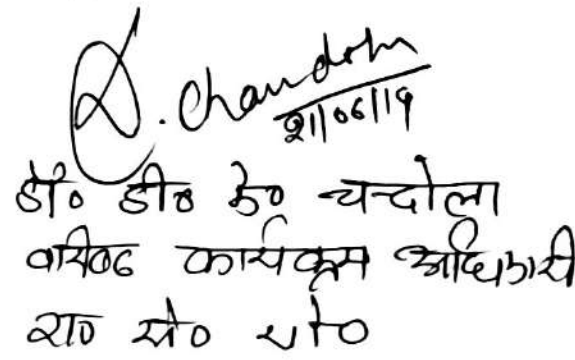 D. Chandola
21/06/19
डॉ० डी० के० चन्दोला
वरिष्ठ कार्यक्रम अधिकारी
रा० से० यो०